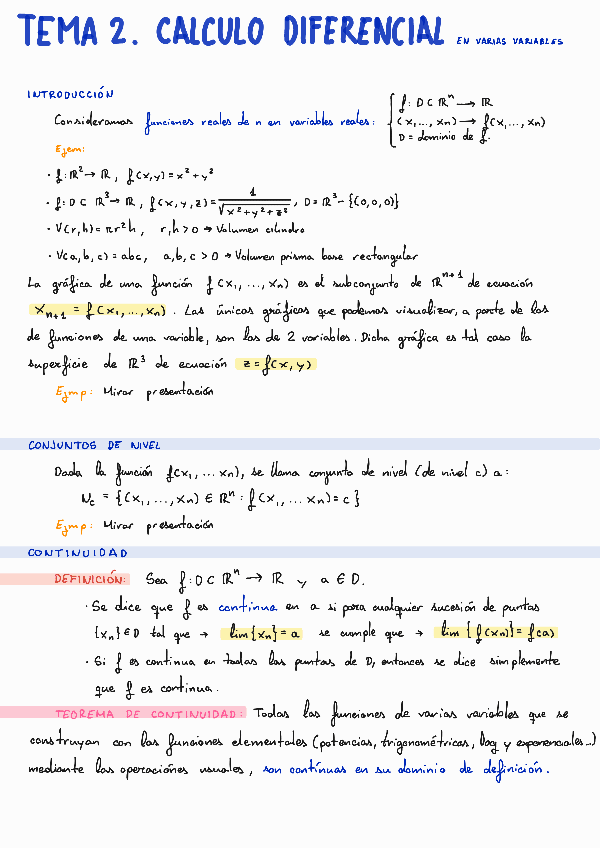 TEMA 2. CALCULO DIFERENCIAL EN VARIAS VARIABLES
INTRODUCCIÓN
Consideramos funciones reales de n en variables reales: { f: D ⊂ ℝⁿ → ℝ
(x₁,..., xₙ) → f(x₁,..., xₙ)
D = dominio de f.
Ejem:
· f: ℝ² → ℝ, f(x,y) = x² + y²
· f: D ⊂ ℝ³ → ℝ, f(x, y, z) = 1/√(x² + y² + z²), D = ℝ³ - {(0,0,0)}
· V(r,h) = πr²h, r,h > 0 → Volumen cilindro
· V(a,b,c) = abc, a,b,c > 0 → Volumen prisma base rectangular
La gráfica de una función f(x₁,..., xₙ) es el subconjunto de ℝⁿ⁺¹ de ecuación
xₙ₊₁ = f(x₁,..., xₙ). Las únicas gráficas que podemos visualizar, a parte de las
de funciones de una variable, son las de 2 variables. Dicha gráfica es tal caso la
superficie de ℝ³ de ecuación z = f(x,y)
Ejmp: Mirar presentación
CONJUNTOS DE NIVEL
Dada la función f(x₁,... xₙ), se llama conjunto de nivel (de nivel c) a:
N_c = {(x₁,..., xₙ) ∈ ℝⁿ : f(x₁,... xₙ) = c}
Ejmp: Mirar presentación
CONTINUIDAD
DEFINICIÓN: Sea f: D ⊂ ℝⁿ → ℝ y a ∈ D.
· Se dice que f es continua en a si para cualquier sucesión de puntas
{xₙ} ∈ D tal que → lim{xₙ} = a se cumple que → lim{f(xₙ)} = f(a)
· Si f es continua en todas las puntas de D, entonces se dice simplemente
que f es continua.
TEOREMA DE CONTINUIDAD: Todas las funciones de varias variables que se
construyan con las funciones elementales (potencias, trigonométricas, log y exponenciales...)
mediante las operaciónes usuales, son contínuas en su dominio de definición.